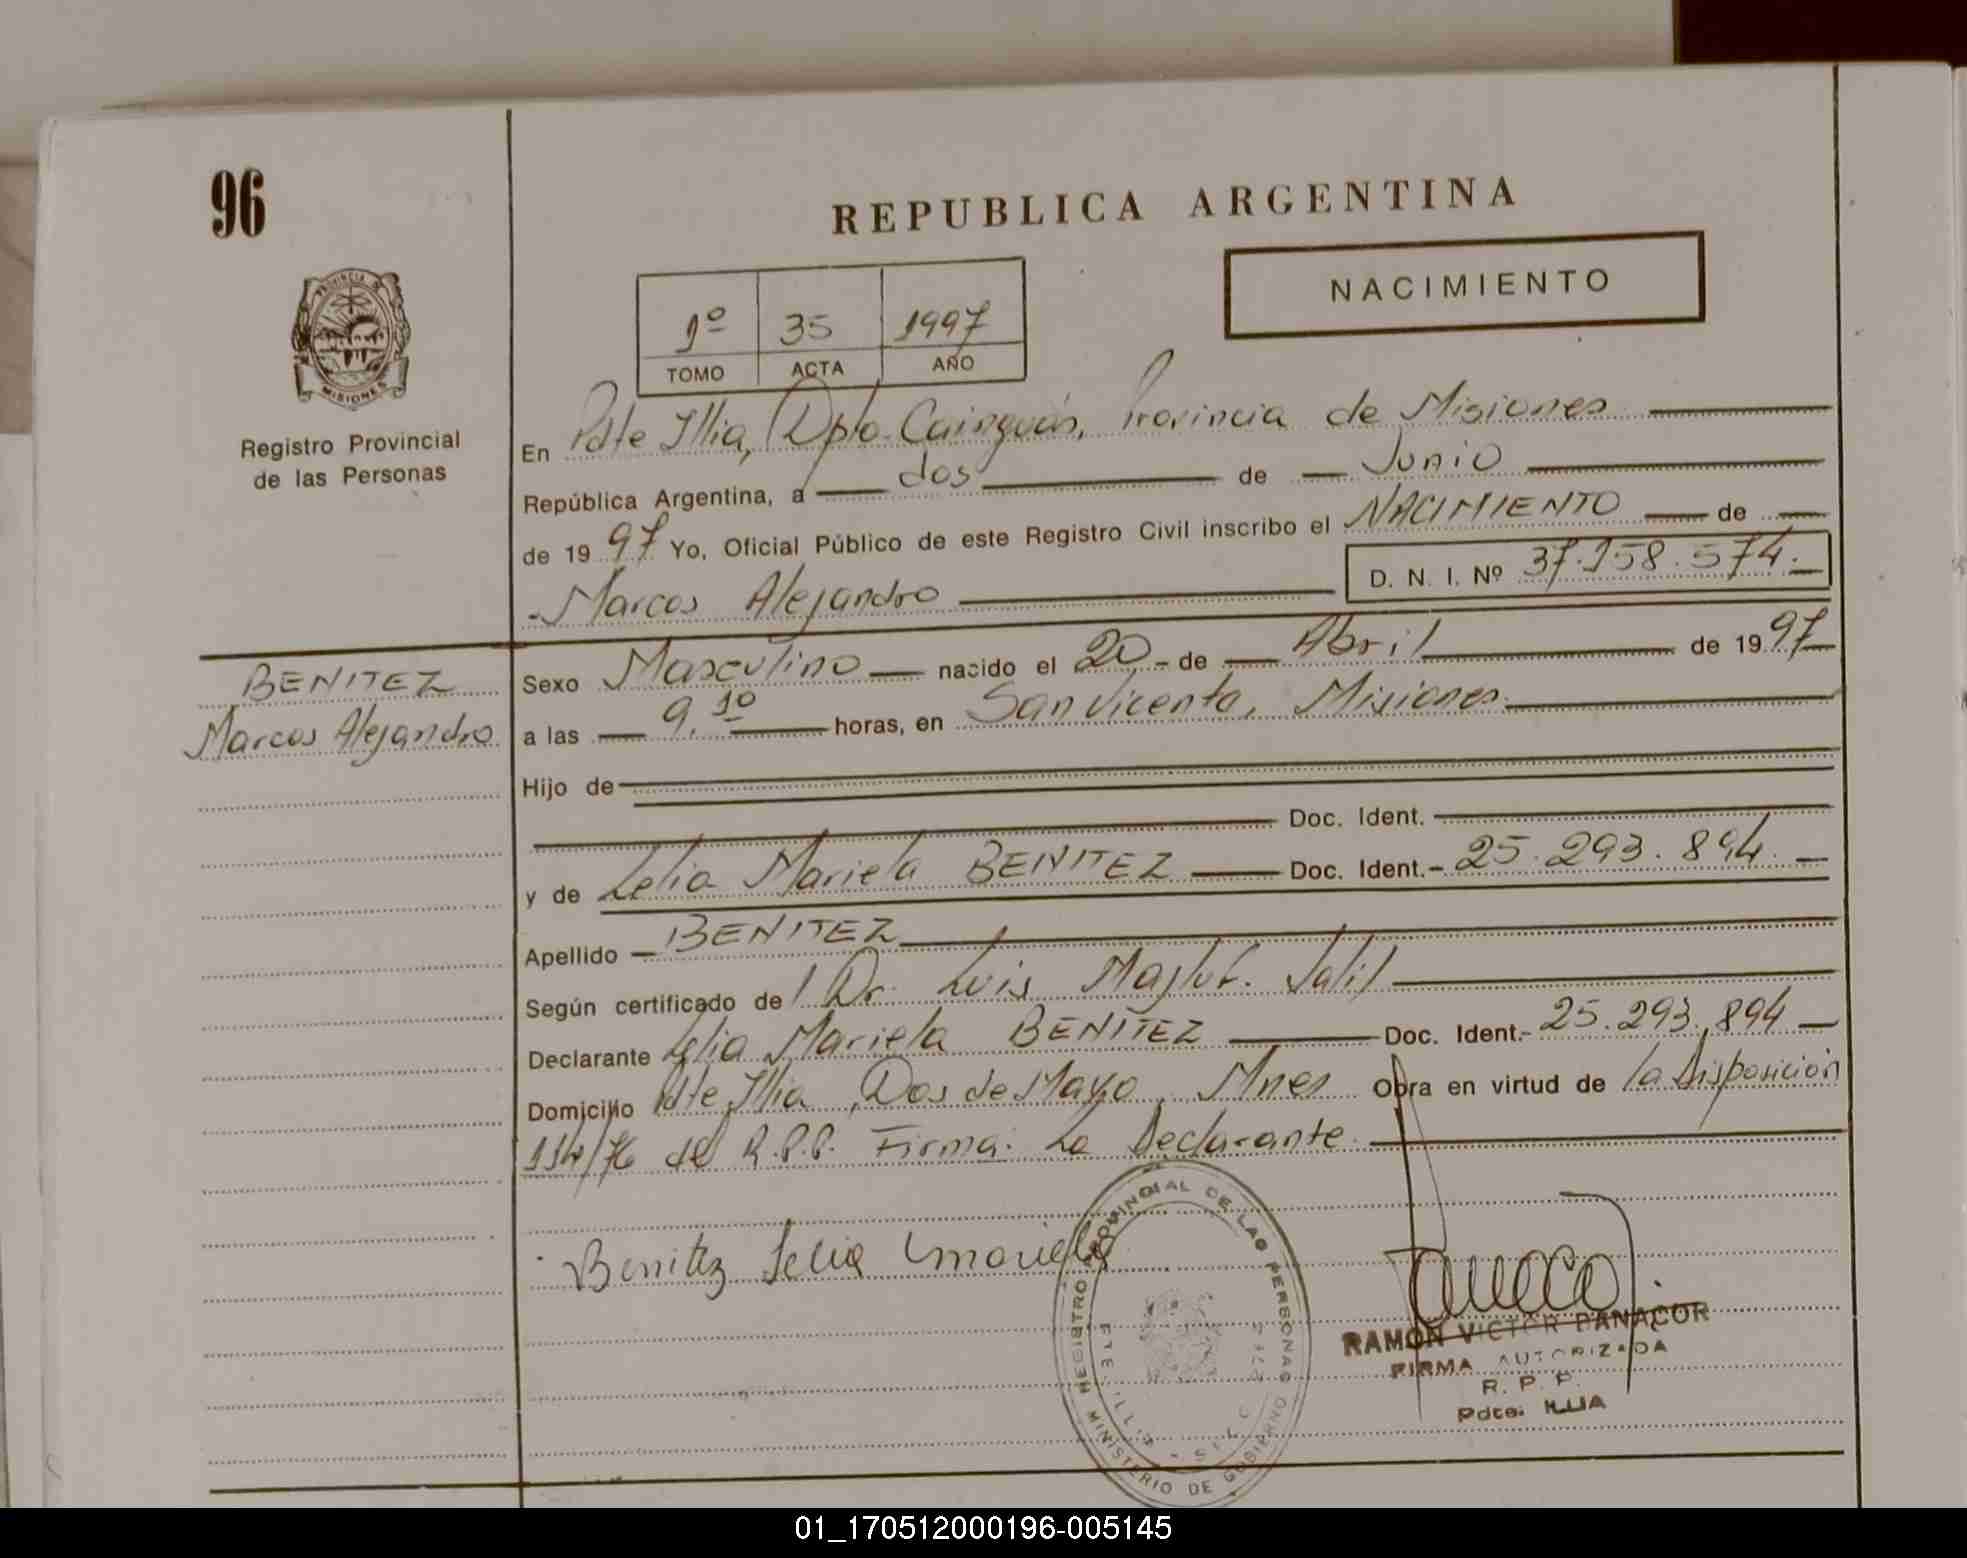 96
REPUBLICA ARGENTINA
PROVINCIA DE
MISIONES
1º 35 1997
TOMO ACTA AÑO
NACIMIENTO
Registro Provincial
de las Personas
En Pdte Illia, Dpto. Cainguás, Provincia de Misiones
República Argentina, a dos de Junio
de 1997 Yo, Oficial Público de este Registro Civil inscribo el NACIMIENTO de
Marcos Alejandro D. N. I. Nº 37.158.574.
BENITEZ
Marcos Alejandro
Sexo Masculino nacido el 20 de Abril de 1997
a las 9,10 horas, en San Vicente, Misiones
Hijo de
Doc. Ident.
y de Lelia Mariela BENITEZ Doc. Ident. 25.293.894.
Apellido BENITEZ
Según certificado de Dr. Luis Jalil
Declarante Lelia Mariela BENITEZ Doc. Ident. 25.293.894
Domicilio Pdte Illia, Dos de Mayo, Mnes Obra en virtud de la Disposición
114/76 del R.P.P. Firma: La Declarante.
Benitez Lelia mariela
REGISTRO PROVINCIAL DE LAS PERSONAS
MINISTERIO DE GOBIERNO
RAMON VICTOR PANACOR
FIRMA AUTORIZADA
R. P. P.
Pdte. ILLIA
01_170512000196-005145